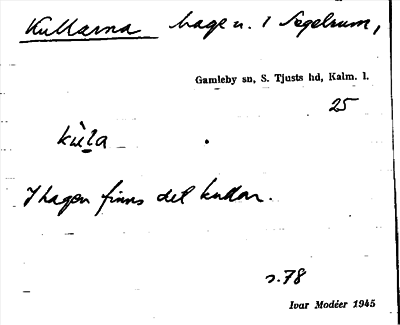 Kullarna hage u. 1 Segelrum,
Gamleby sn, S. Tjusts hd, Kalm. l.
25
kùla
I hagen finns det kullar.
s. 78
Ivar Modéer 1945